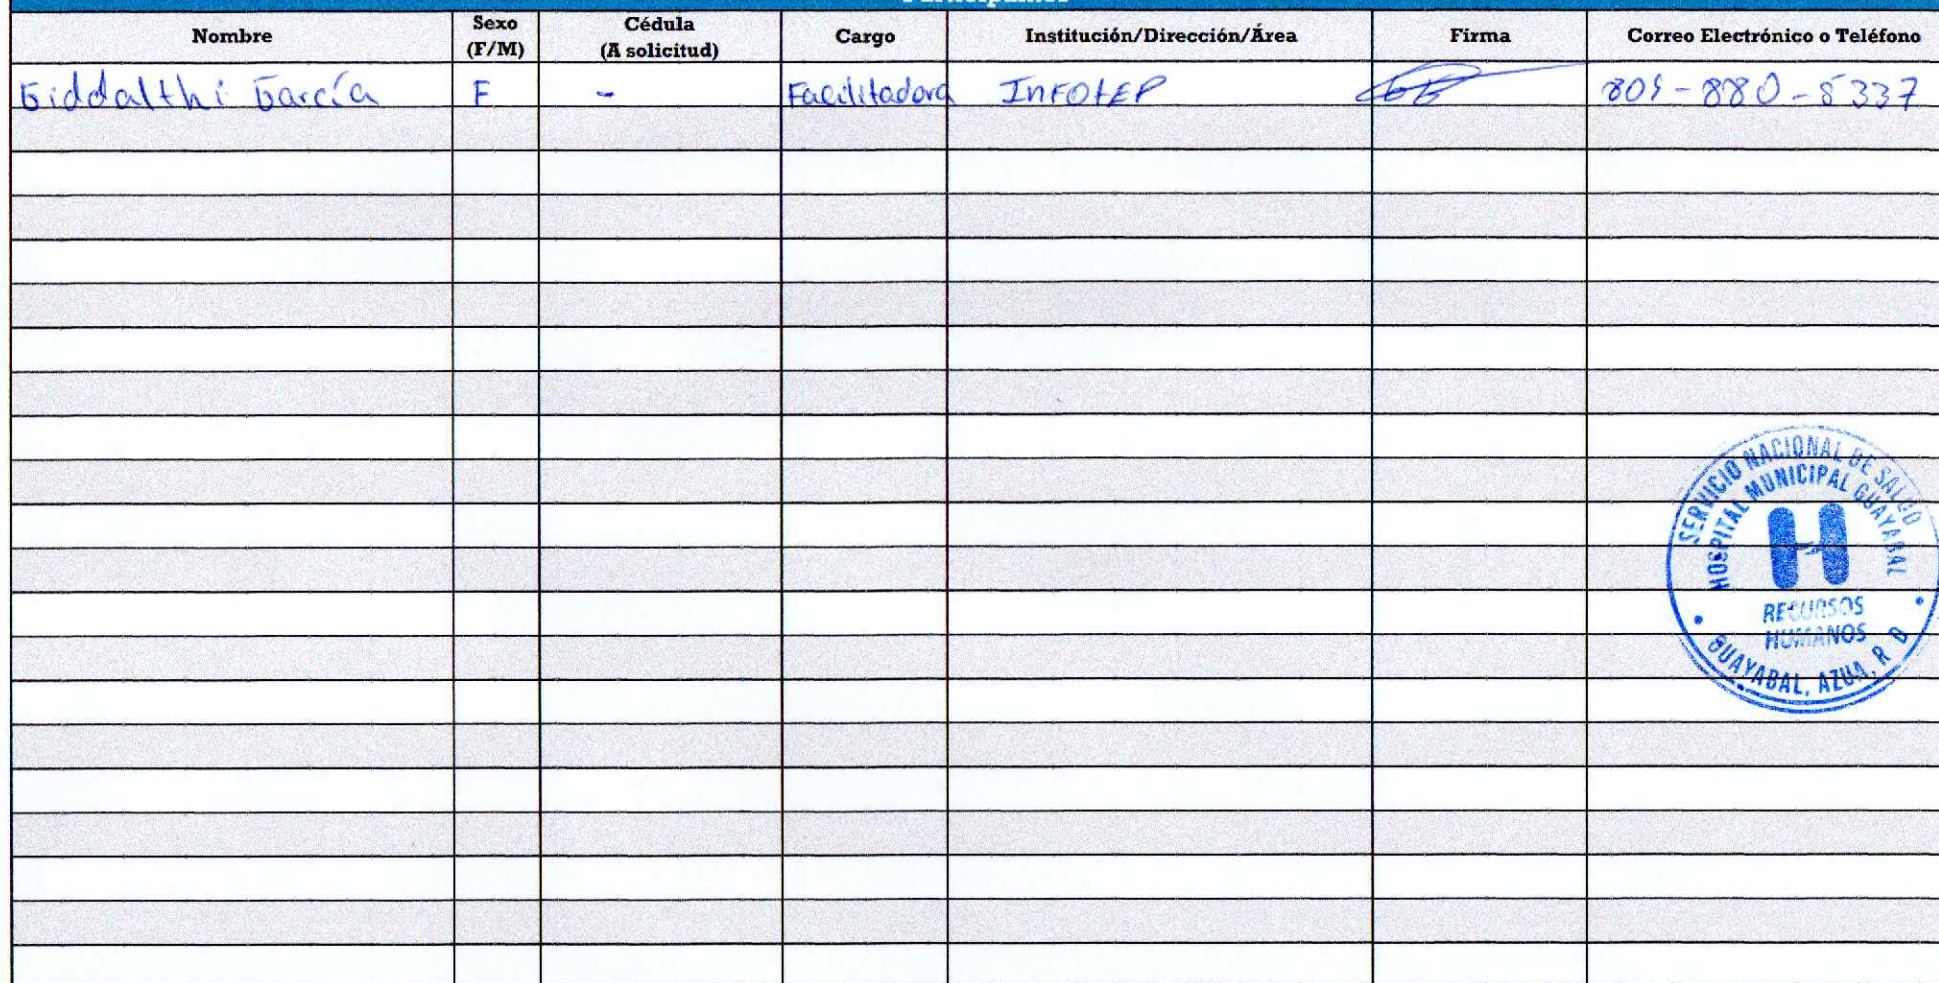 Participantes
Nombre Sexo (F/M) Cédula (A solicitud) Cargo Institución/Dirección/Área Firma Correo Electrónico o Teléfono
Giddalthi García F - Facilitadora INFOTEP 809-880-5337
SERVICIO NACIONAL DE SALUD
HOSPITAL MUNICIPAL GUAYABAL
H
RECURSOS
HUMANOS
GUAYABAL, AZUA, R D